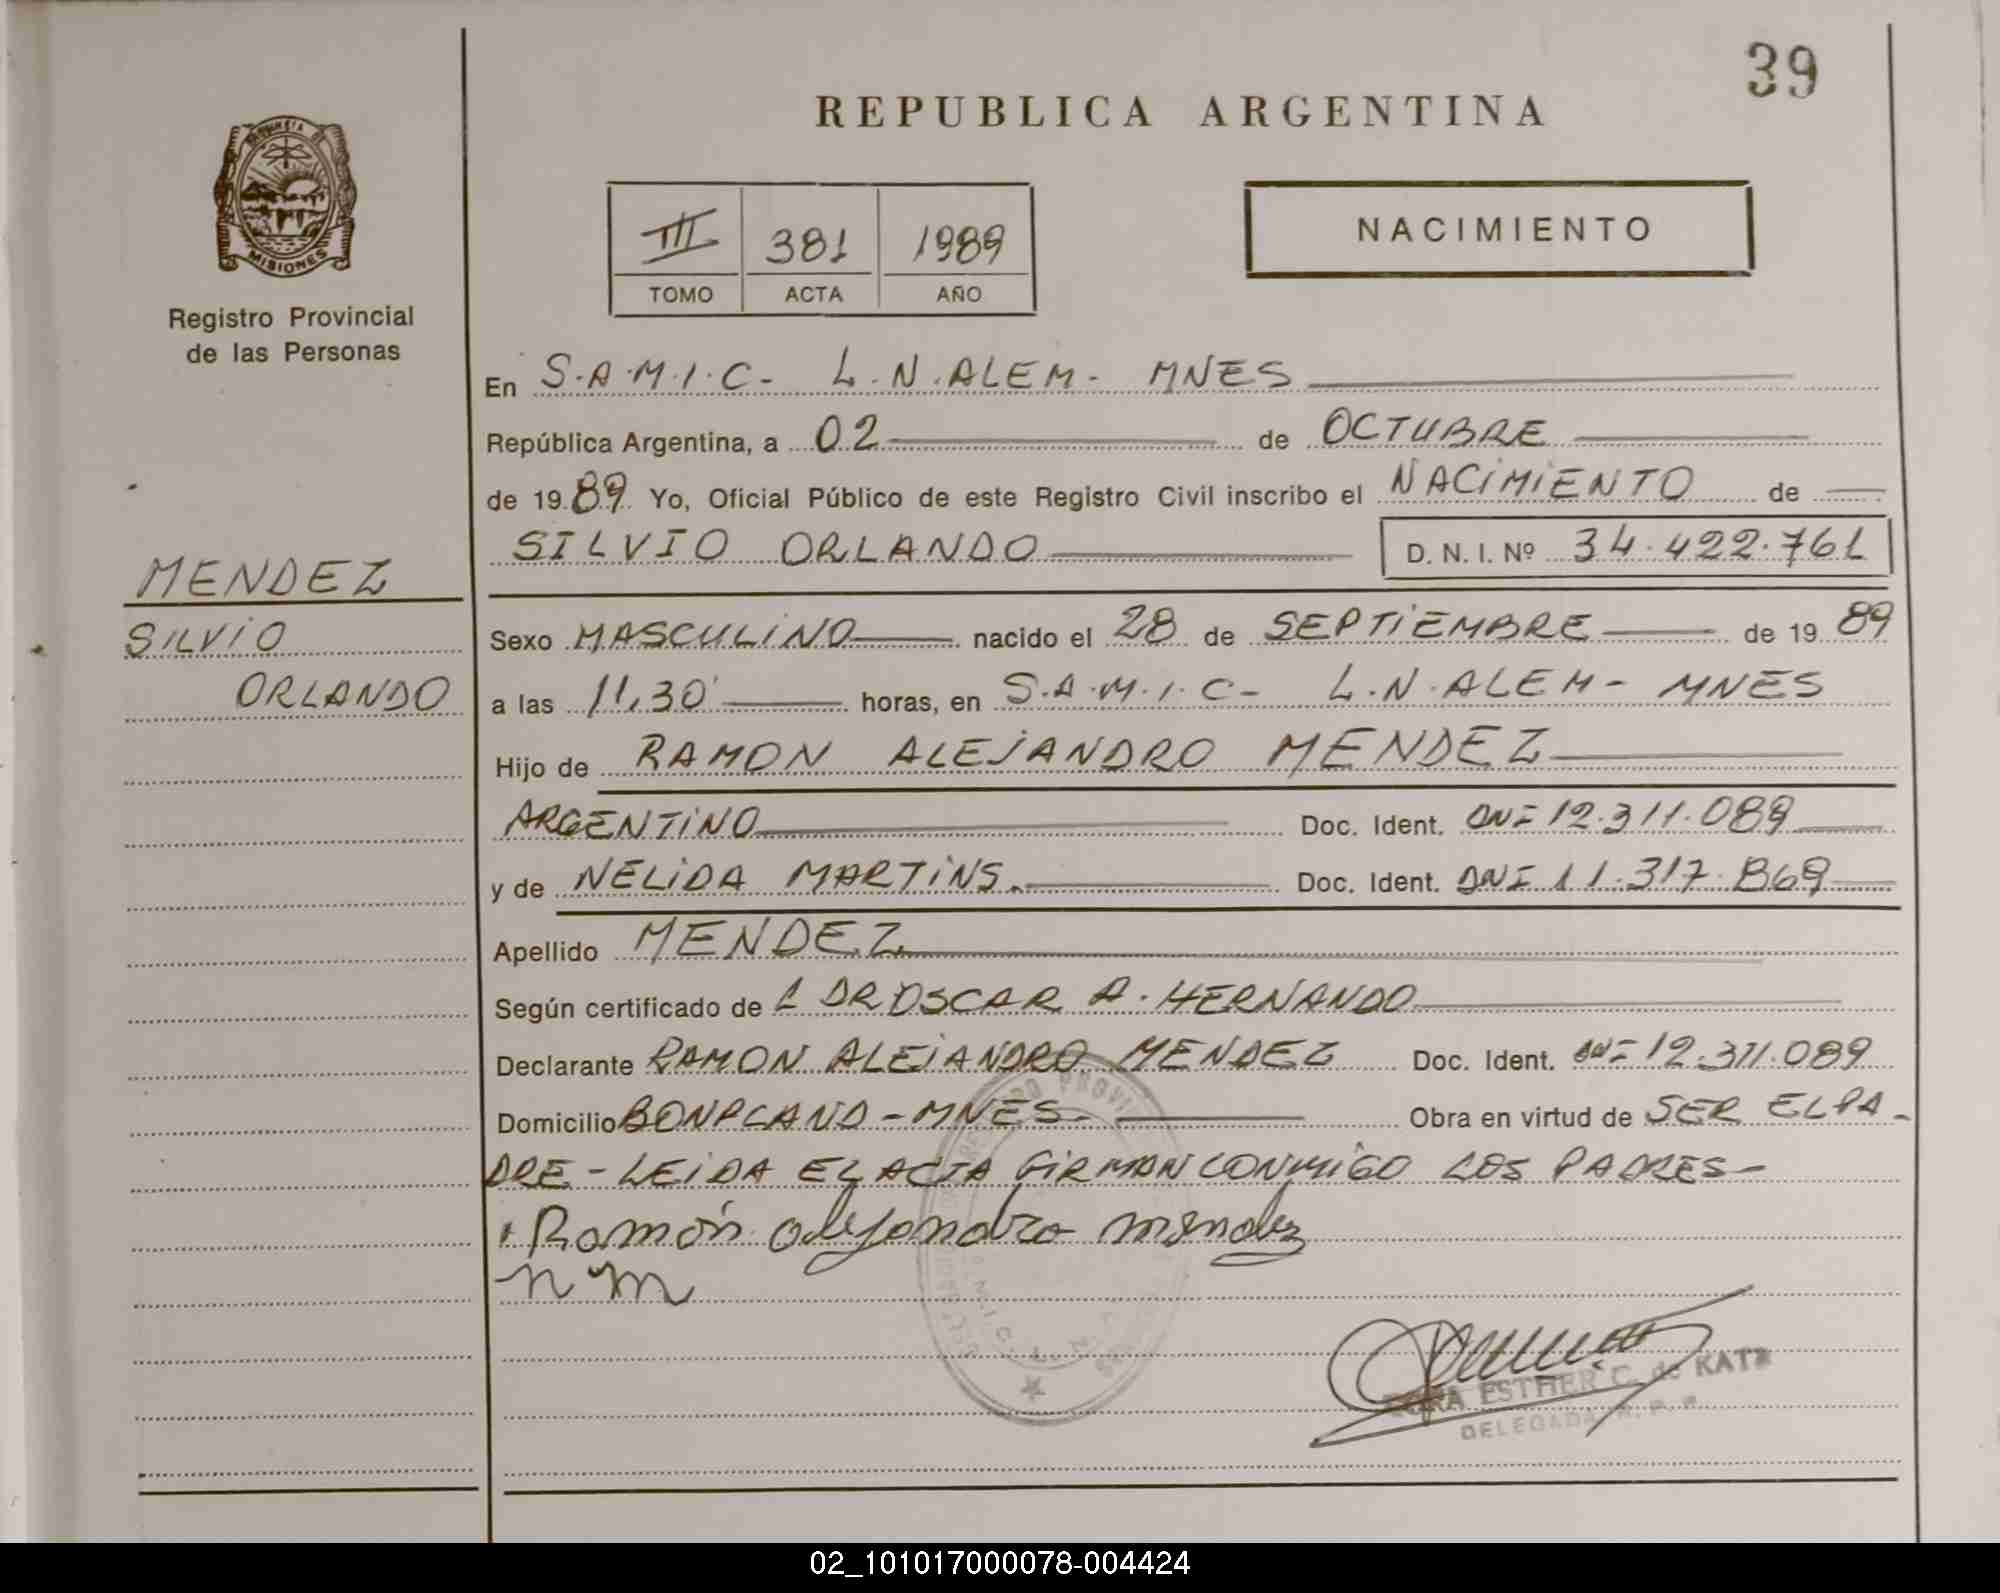 39
REPUBLICA ARGENTINA
PROVINCIA DE
MISIONES
Registro Provincial
de las Personas
III 381 1989
TOMO ACTA AÑO
NACIMIENTO
En S.A.M.I.C- L.N.ALEM- MNES
República Argentina, a 02 de OCTUBRE
de 1989 Yo, Oficial Público de este Registro Civil inscribo el NACIMIENTO de
SILVIO ORLANDO D. N. I. Nº 34.422.761
MENDEZ
SILVIO
ORLANDO
Sexo MASCULINO nacido el 28 de SEPTIEMBRE de 1989
a las 11,30 horas, en S.A.M.I.C- L.N.ALEM- MNES
Hijo de RAMON ALEJANDRO MENDEZ
ARGENTINO Doc. Ident. DNI 12.311.089
y de NELIDA MARTINS. Doc. Ident. DNI 11.317.869
Apellido MENDEZ
Según certificado de L DR OSCAR A. HERNANDO
Declarante RAMON ALEJANDRO MENDEZ Doc. Ident. DNI 12.311.089
Domicilio BONPLAND - MNES- Obra en virtud de SER EL PA-
DRE - LEIDA EL ACTA FIRMAN CONMIGO LOS PADRES-
Ramón alejandro mendez
n m
ESTHER C. de KATZ
DELEGADA R. P. P.
02_101017000078-004424